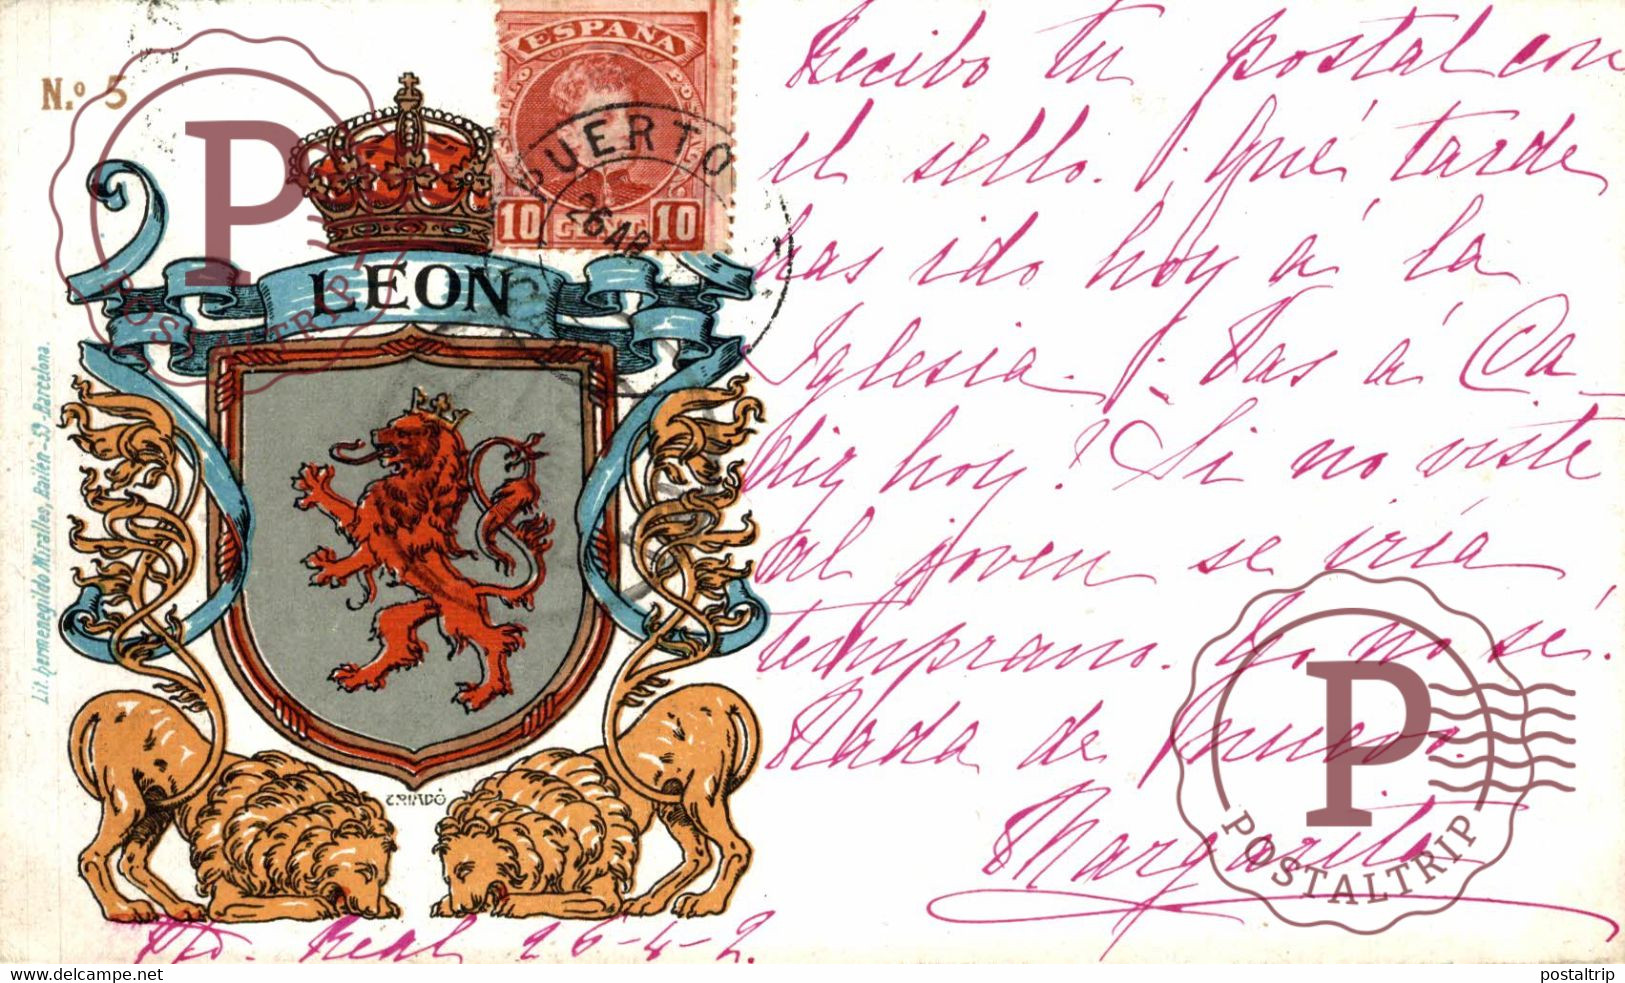 N.º 5
ESPAÑA
10 CENT. 10
PUERTO
26 ABR
LEON
Lit. Hermenegildo Miralles, Bailén-59-Barcelona.
CRIADÓ
Recibo tu postal con
el sello. ¡Qué tarde
has ido hoy á la
Iglesia. ¿Vas á Ca-
diz hoy? Si no viste
tal joven se iría
temprano. Yo no sé.
Nada de nuevo.
Margarita
Pto. Real 26-4-2.
P
POSTALTRIP
P
POSTALTRIP
www.delcampe.net
postaltrip